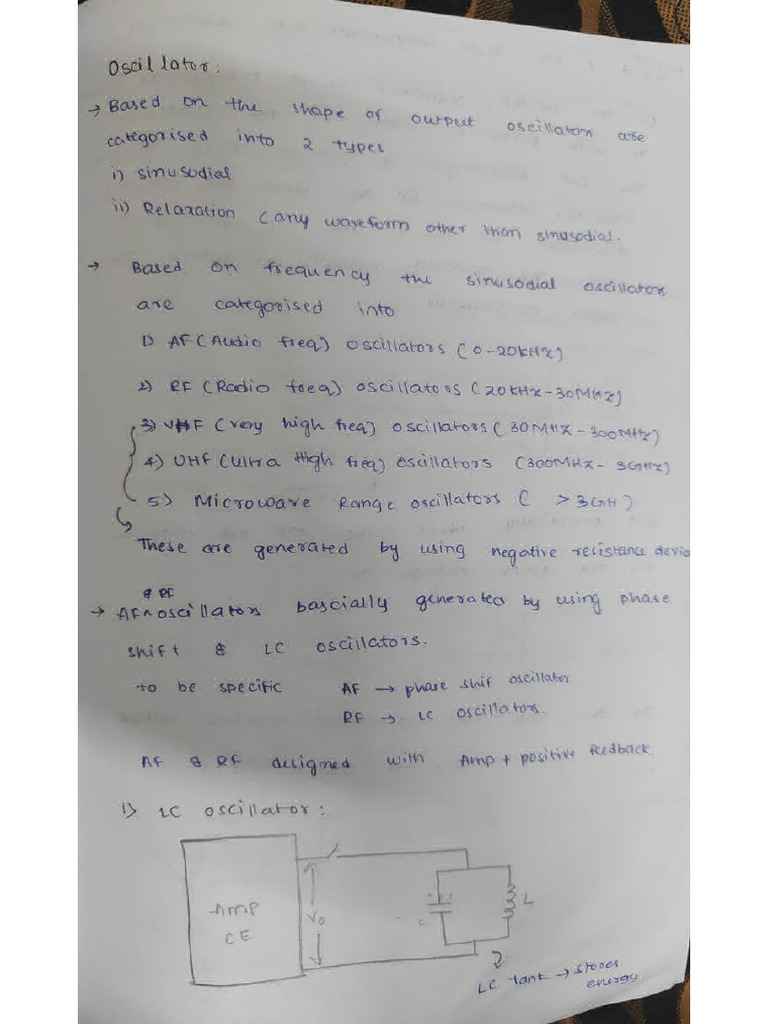 Oscillator:
→ Based on the shape of output oscillators are
categorised into 2 types
i) sinusodial
ii) Relaxation (any waveform other than sinusodial.
→ Based on frequency the sinusodial oscillators
are categorised into
1) AF (Audio freq) oscillators (0-20kHz)
2) RF (Radio freq) oscillators (20kHz-30MHz)
3) VHF (very high freq) oscillators (30MHz-300MHz)
4) UHF (Ultra High freq) oscillators (300MHz-3GHz)
5) Microwave Range oscillators ( >3GH)
These are generated by using negative resistance devic
& RF
→ AF^oscillators bascially generated by using phase
shift & LC oscillators.
to be specific AF → phase shif oscillator
RF → LC oscillators.
AF & RF designed with Amp + positive feedback.
1) LC oscillator:
AMP
CE
Vo
C
L
LC tank → stores
energy